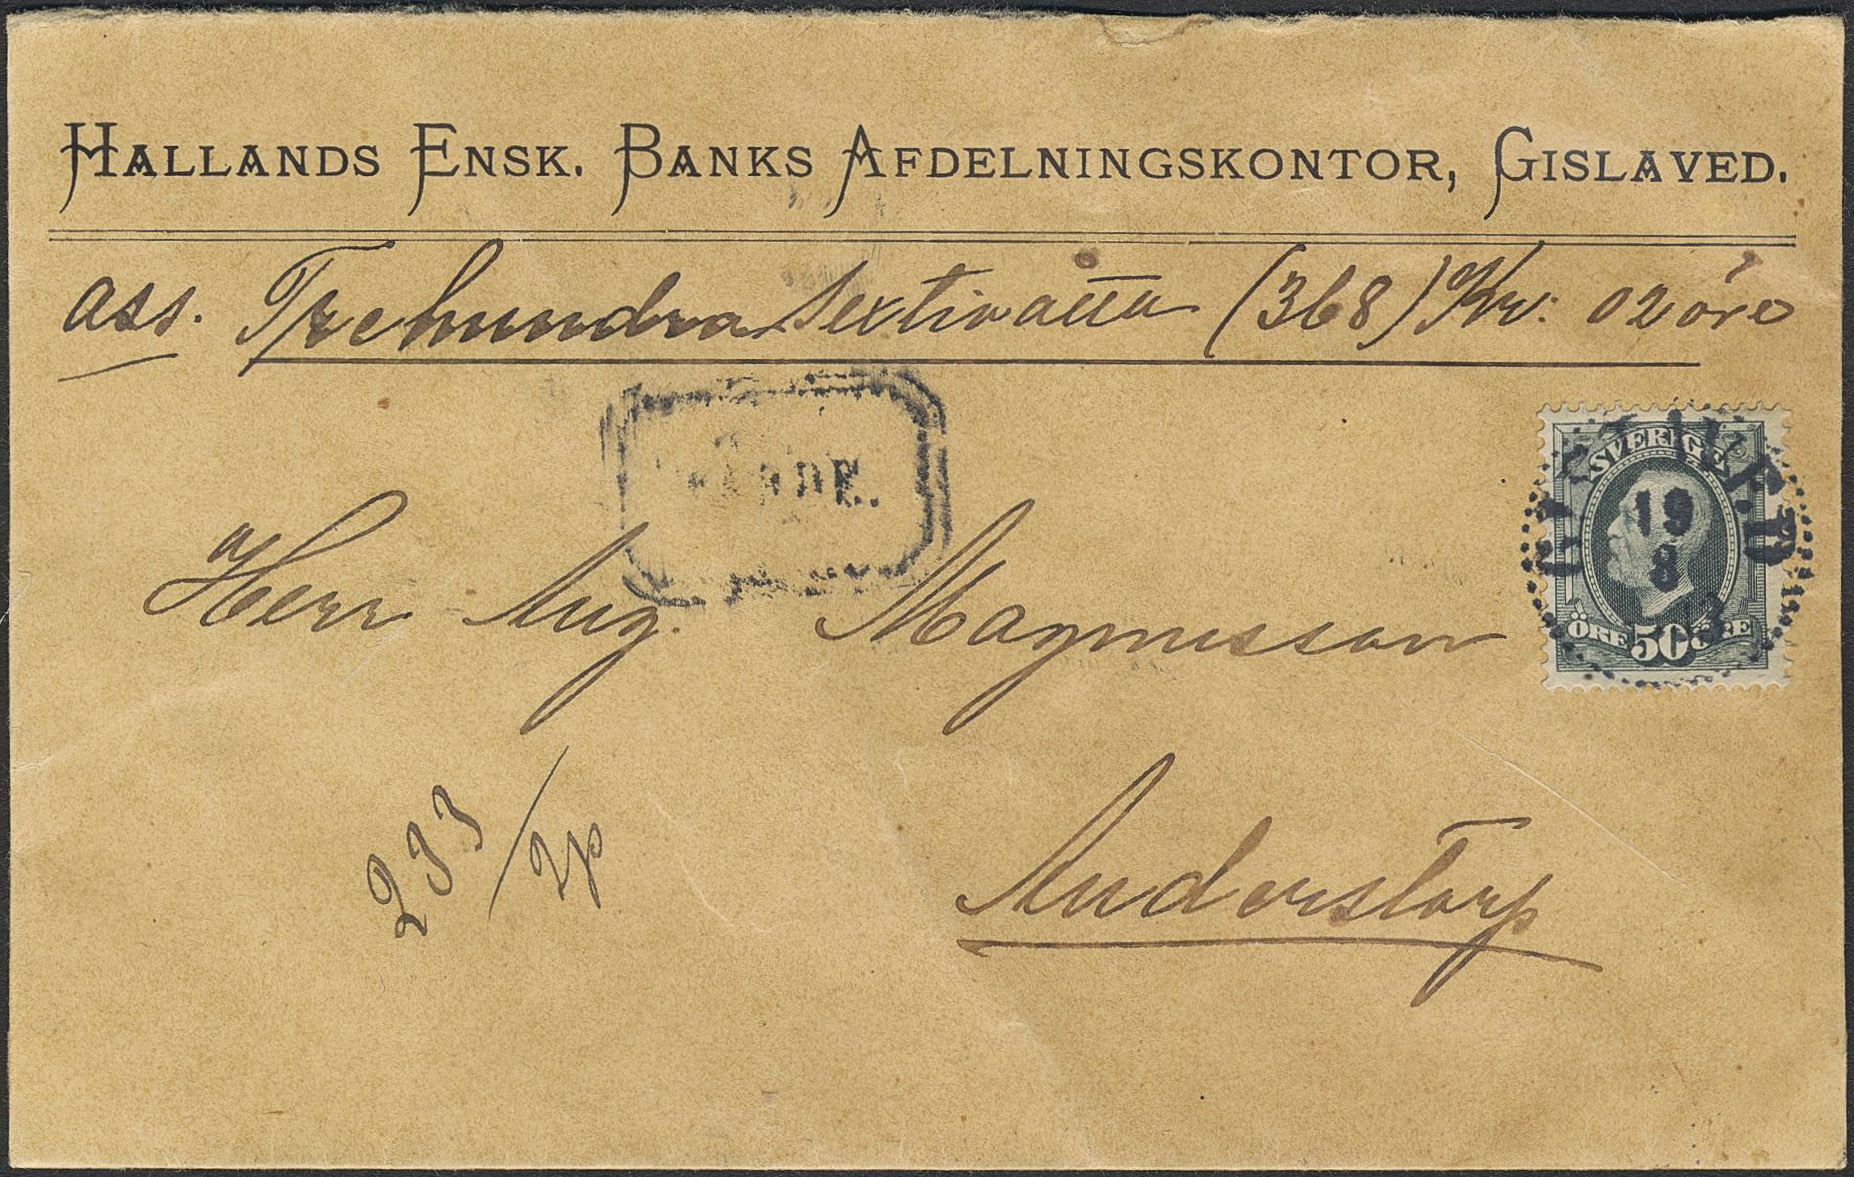 HALLANDS ENSK. BANKS AFDELNINGSKONTOR, GISLAVED.
ass. Trehundra Sextioåtta (368) Kr: 02 öre
SVERIGE
19
8
ÖRE 50 ÖRE
Herr Aug. Magnusson
233/2p
Anderstorp